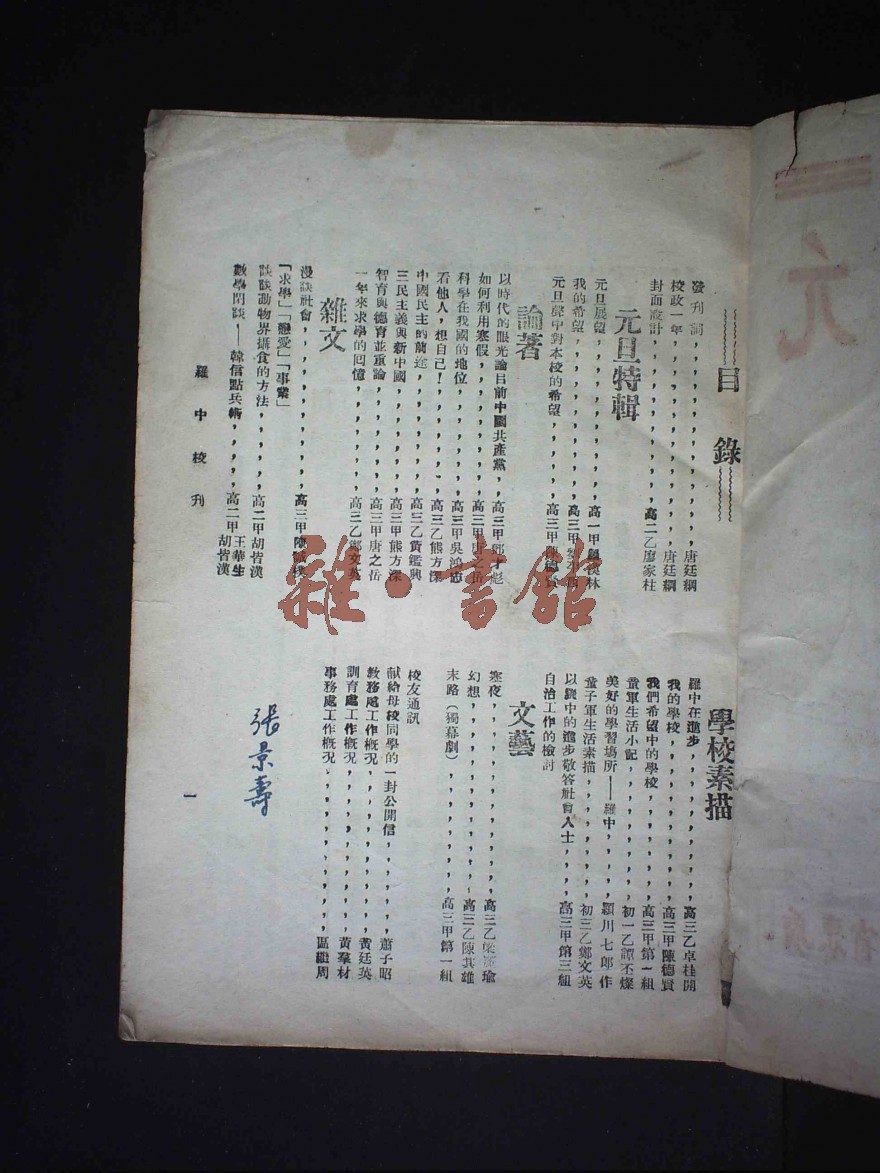 目錄
發刊詞,,,,,,,,,,,,唐廷綱
校政一年,,,,,,,,,,,唐廷綱
封面設計,,,,,,,,,,高二乙廖家柱
元旦特輯
元旦展望,,,,,,,,,高一甲
我的希望,,,,,,,,,高三甲
元旦聲中對本校的希望,,,,,高三甲陳
論著
以時代的眼光論目前中國共產黨,高三甲鄧才彪
如何利用寒假,,,,,,,高三甲唐之岳
科學在我國的地位,,,,,,高三甲吳鴻志
看他人,想自己!,,,,,,高三乙熊方深
中國民主的前途,,,,,,,高三乙黃鑑興
三民主義與新中國,,,,,,高三甲熊方深
智育與德育並重論,,,,,,高三甲唐之岳
一年來求學的回憶,,,,,,高三乙鄭文英
雜文
漫談社會,,,,,,,,,高三甲陳
「求學」「戀愛」「事業」
談談動物界攝食的方法,,,,,高二甲胡皆漢
數學閒談——韓信點兵術,,,,高二甲王華生
胡皆漢
羅中校刊
學校素描
羅中在進步,,,,,,,,高三乙卓桂開
我的學校,,,,,,,,,高三甲陳德賢
我們希望中的學校,,,,,,高三甲第一組
童軍生活小記,,,,,,,初一乙譚丕燦
美好的學習場所——羅中,,,,潁川七郎作
童子軍生活素描,,,,,,,初三乙鄭文英
以羅中的進步敬答社會人士,,,高三甲第三組
自治工作的檢討
文藝
寒夜,,,,,,,,,,,高三乙梁瑜
幻想,,,,,,,,,,,高三乙陳其雄
末路(獨幕劇),,,,,,,高三甲第一組
校友通訊
献給母校同學的一封公開信,,,,,蕭子昭
教務處工作概況,,,,,,,,黃廷英
訓育處工作概況,,,,,,,,黃羣材
事務處工作概況,,,,,,,,區繼周
張景壽
一
雜·書館
元